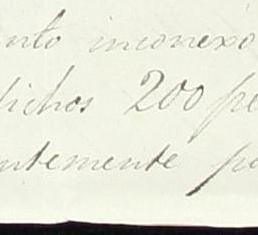 nto inconexo
dichos 200 pe
ntemente pa